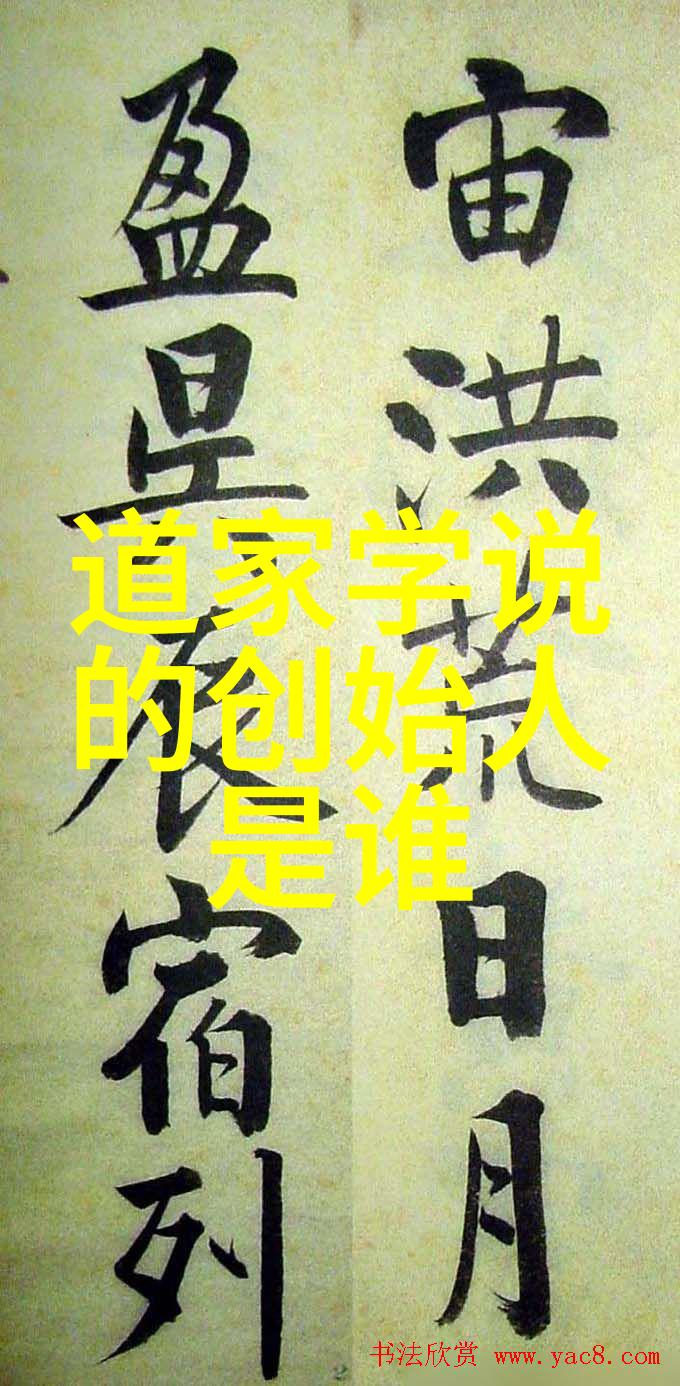 宙洪荒日月
盈昃辰宿列
道家学说
的创始人
是谁
书法欣赏 www.yac8.com